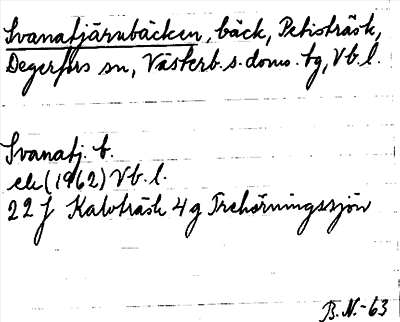 Svanatjärnbäcken, bäck, Petisträsk,
Degerfors sn, Västerb. s. doms. tg, Vb. l.
Svanatj. b.
ek (1962) Vb. l.
22 J Kalvträsk 4 g Trehörningssjön
B. N. -63